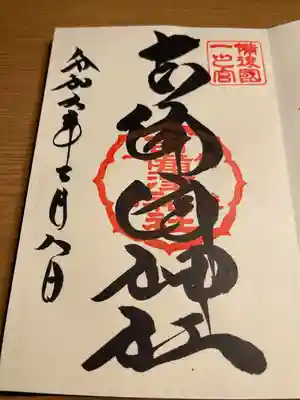 備後國
一之宮
吉備津神社
令和六年七月八日